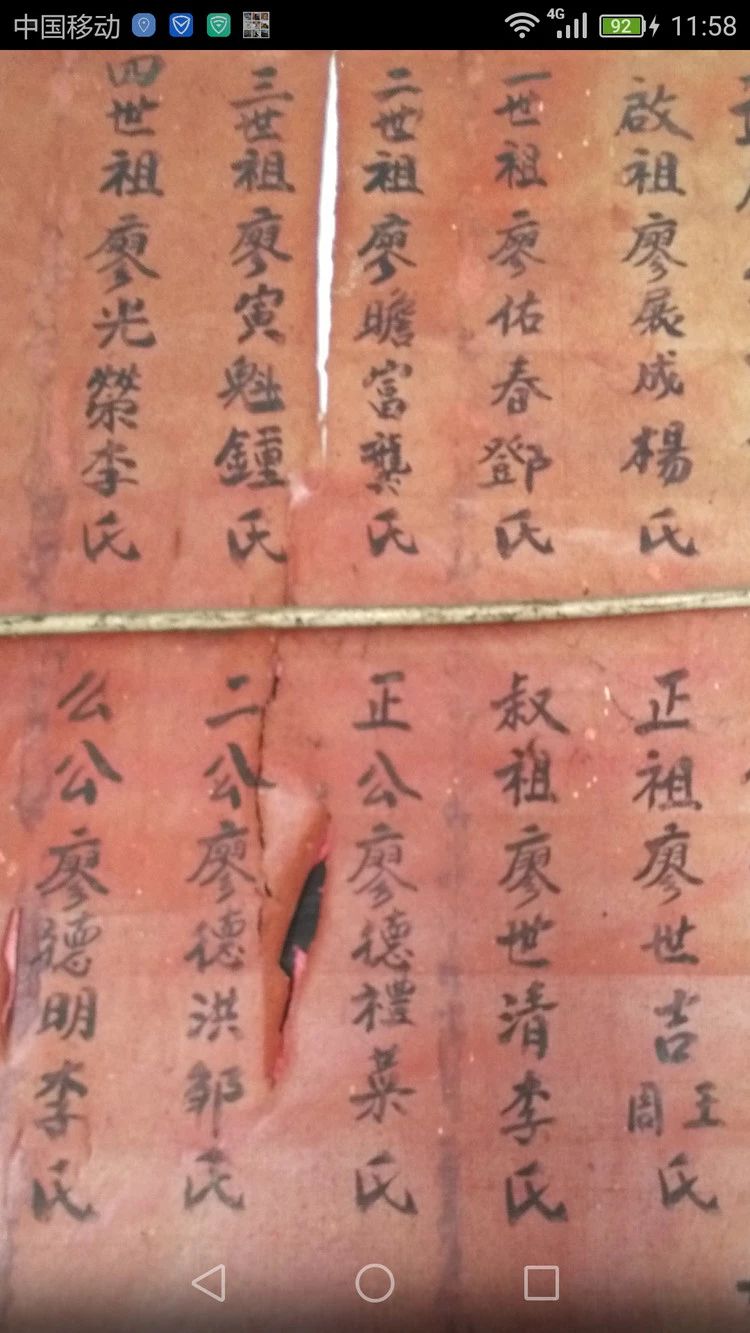 中国移动 4G 92 11:58
啟祖廖展成楊氏
一世祖廖佑春鄧氏
二世祖廖瞻富龔氏
三世祖廖寅魁鍾氏
四世祖廖光榮李氏
正祖廖世吉王周氏
叔祖廖世清李氏
正公廖德禮葉氏
二公廖德洪邹氏
么公廖德明李氏